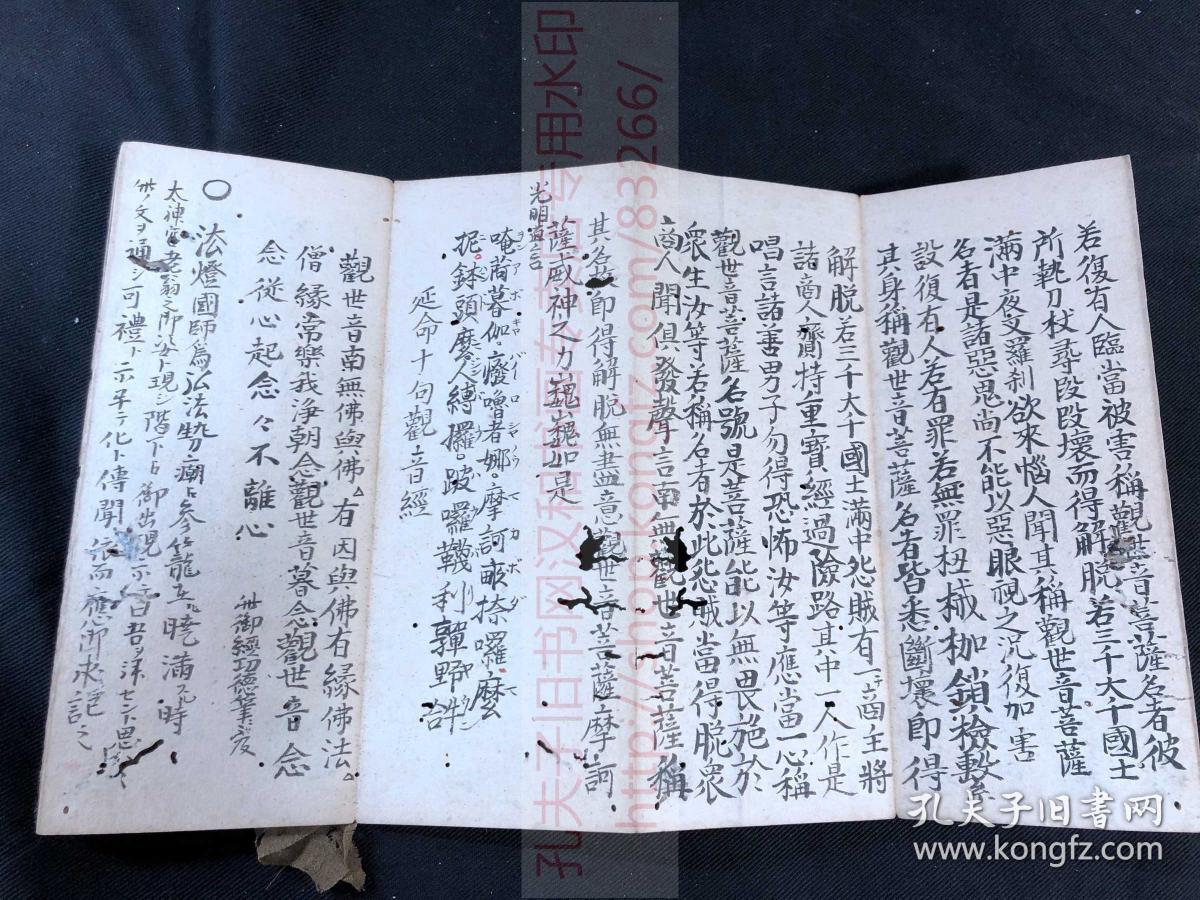 若復有人臨當被害稱觀世音菩薩名者彼
所執刀杖尋段段壞而得解脱若三千大千國土
滿中夜叉羅刹欲來惱人聞其稱觀世音菩薩
名者是諸惡鬼尚不能以惡眼視之况復加害
設復有人若有罪若無罪杻械枷鎖檢繫
其身稱觀世音菩薩名者皆悉斷壞即得
解脱若三千大千國土滿中怨賊有一商主將
諸商人齎持重寶經過險路其中一人作是
唱言諸善男子勿得恐怖汝等應當一心稱
觀世音菩薩名號是菩薩能以無畏施於
衆生汝等若稱名者於此怨賊當得脱衆
商人聞俱發聲言南無觀世音菩薩稱
其名故即得解脱無盡意觀世音菩薩摩訶
薩威神之力巍巍如是
光明真言
唵荷暮伽癈嚕者娜摩訶畝捺囉麽
抳鉢頭麽人縛攞跛囉韈利嚲野吽
延命十句觀音經
觀世音南無佛與佛有因與佛有緣佛法
僧緣常樂我浄朝念觀世音暮念觀世音念
念從心起念々不離心
此御經功德
〇法燈國師為弘法廟參籠暁滿時
太神宮老翁之御姿ト現シ階下ヨ御出現示
此ノ文ヲ通シ可禮ト示化ト傳聞
孔夫子旧书网
www.kongfz.com
http://shop.kongfz.com/83266/